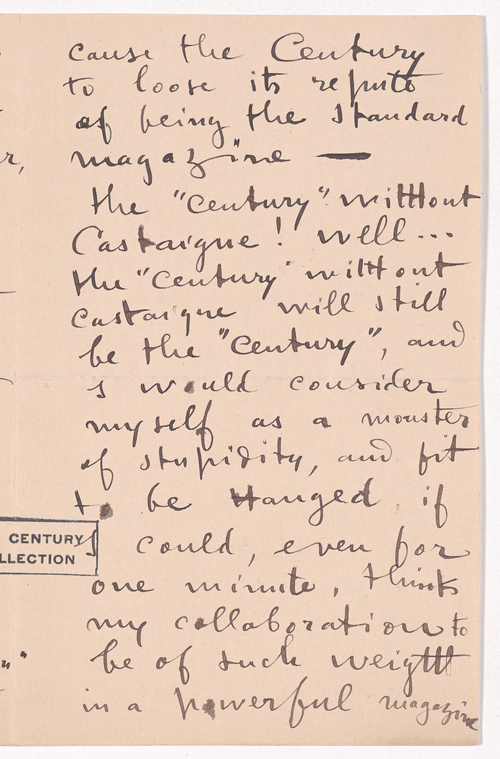 cause the Century
to loose its repute
of being the standard
magazine —
r,
the "century" without
Castaigne! well...
the "century" without
castaigne will still
be the "century", and
I would consider
myself as a monster
of stupidity, and fit
to be Hanged, if
CENTURY
LLECTION
I could, even for
one minute, think
my collaboration to
be of such weight
in a powerful magazine